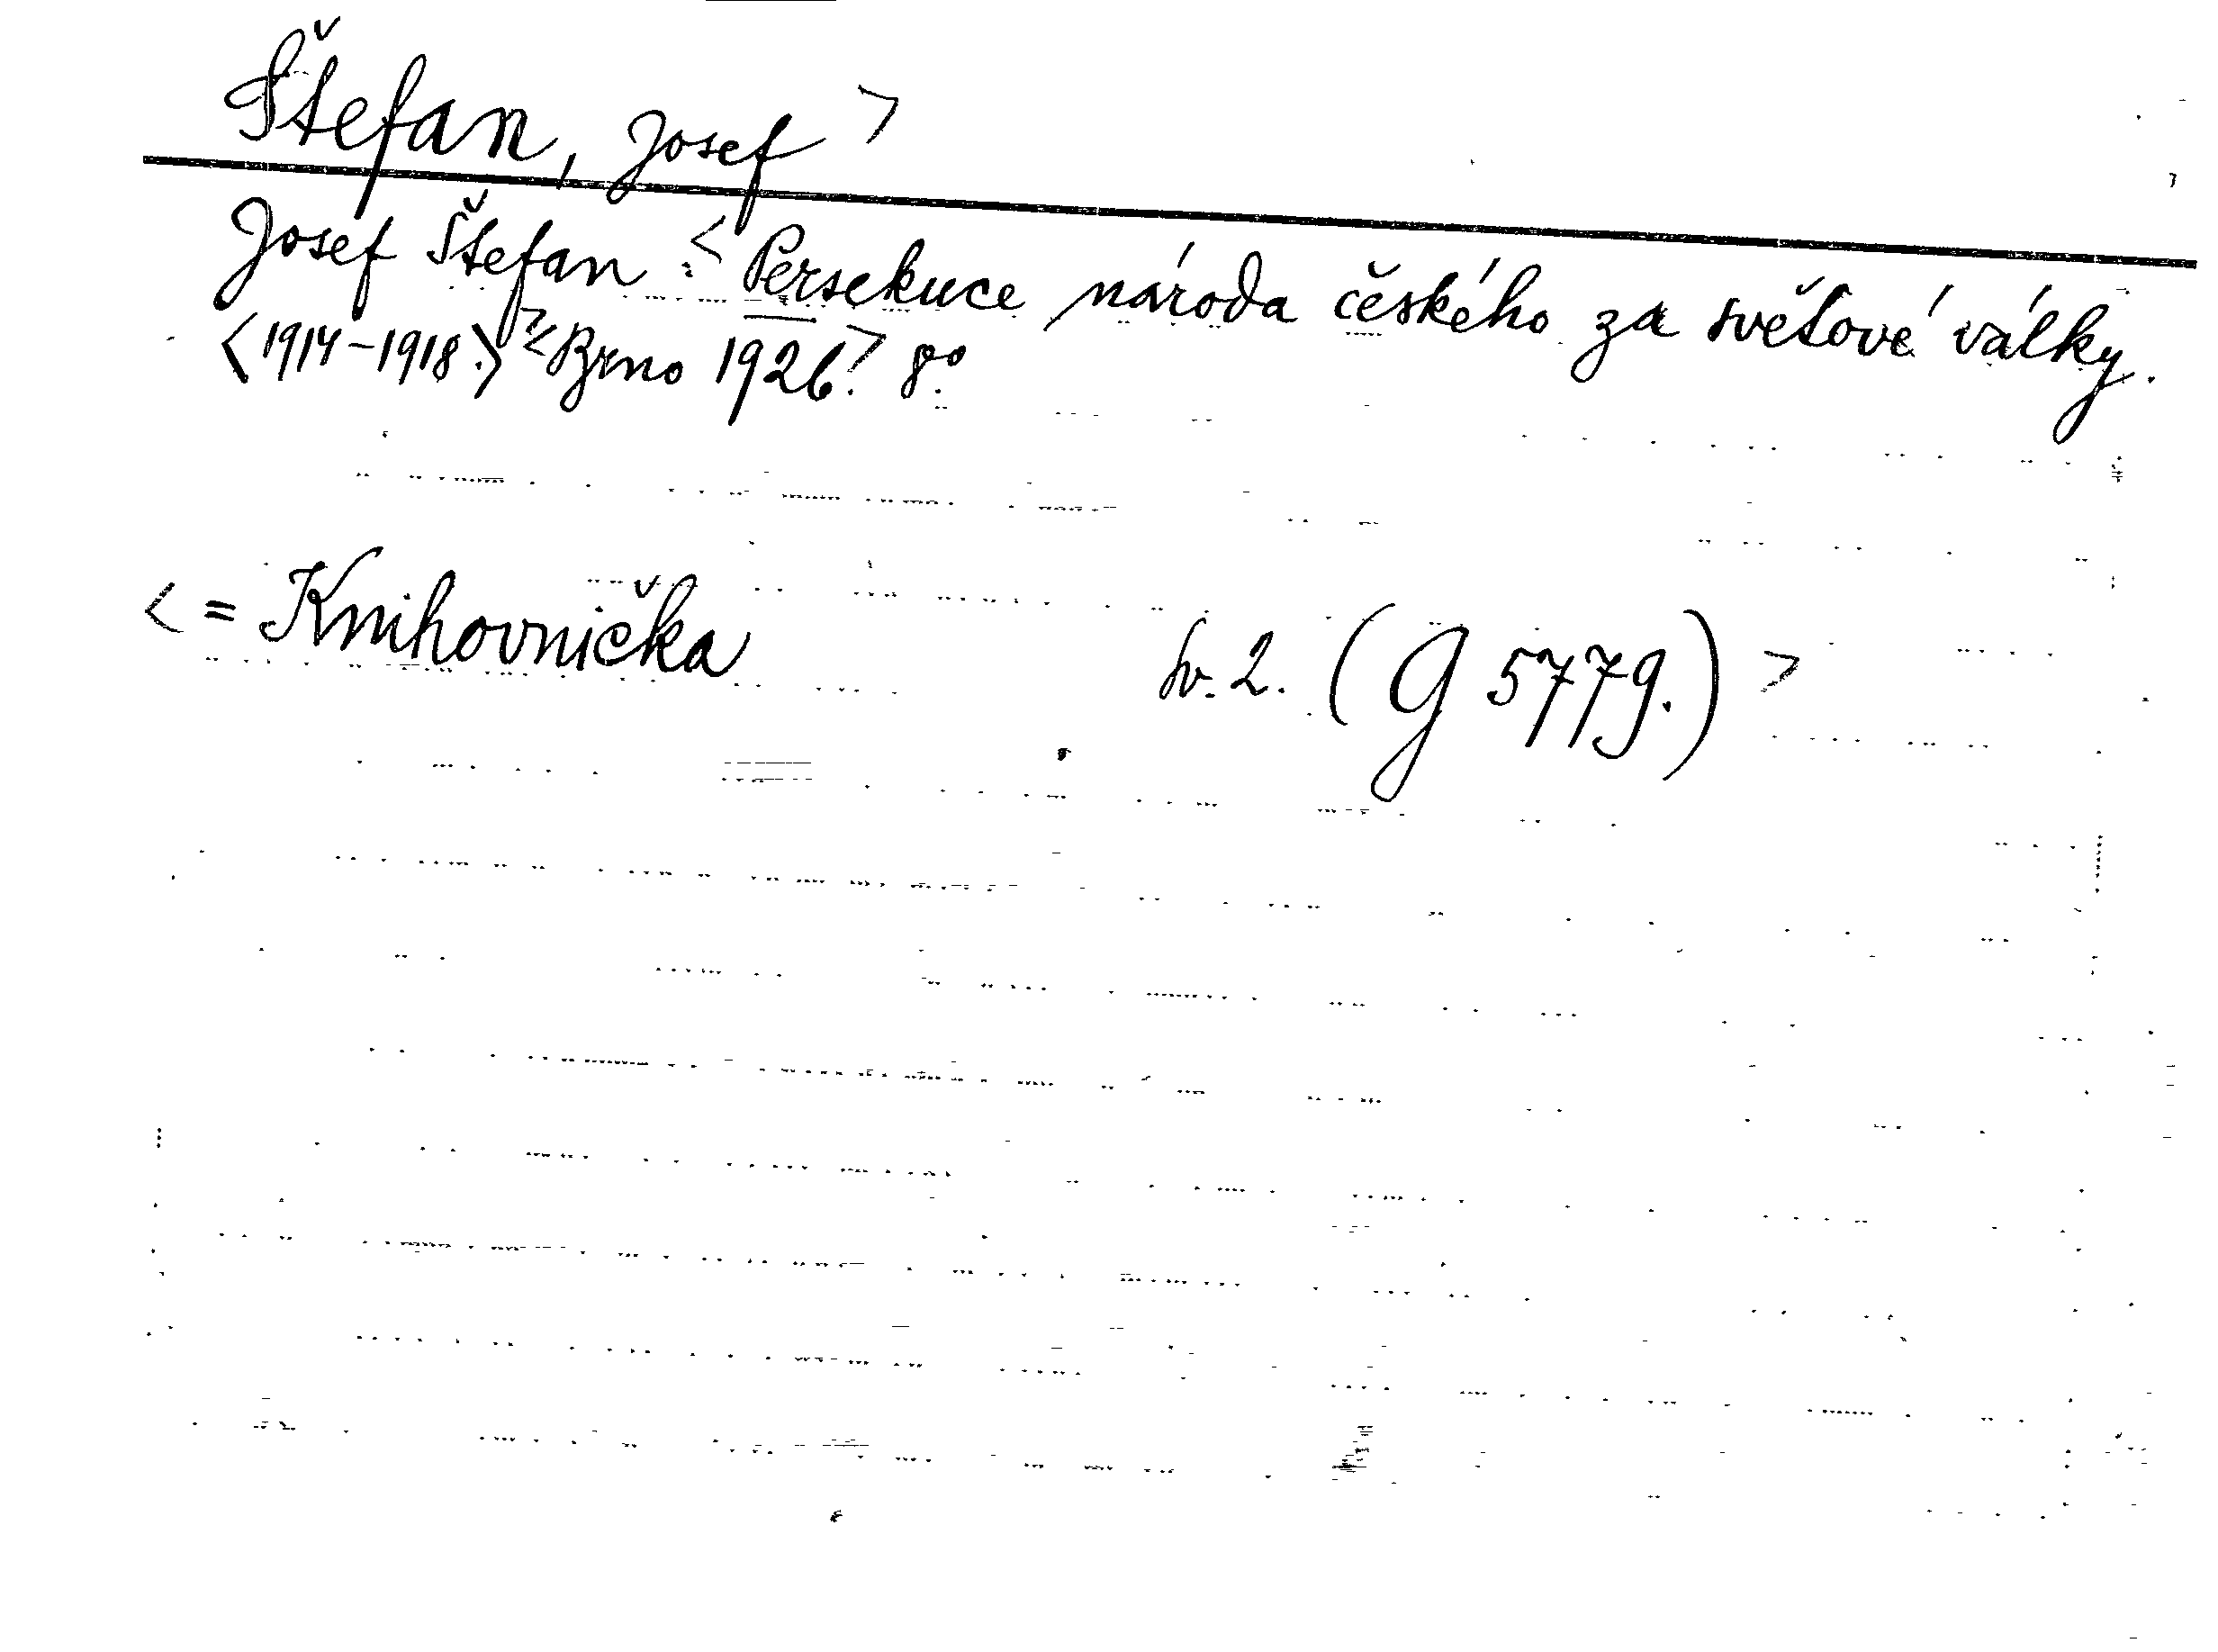 Štefan, Josef >
Josef Štefan: < Persekuce národa českého za světové války.
<1914-1918.> > < Brno 1926. > 8°.
< = Knihovnička sv. 2. (G 5779.) >